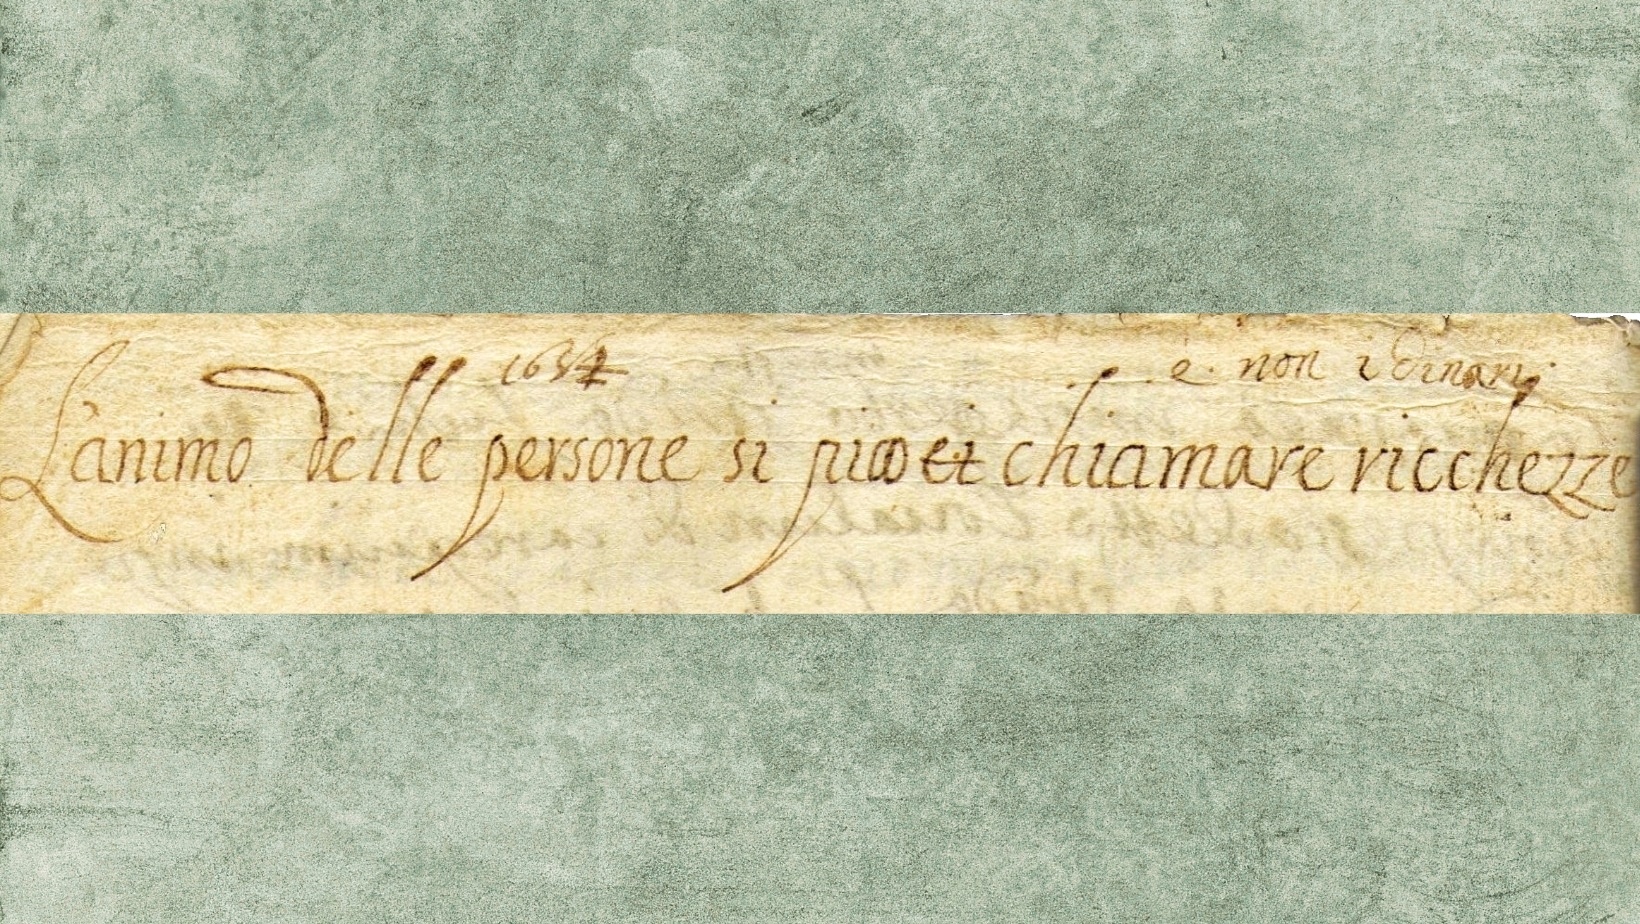 1634 e non i dinari
L'animo delle persone si et chiamare ricchezze